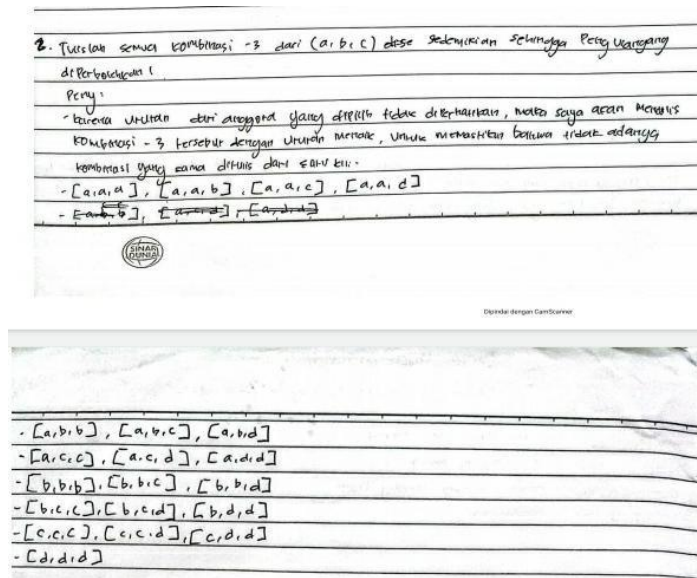 2. Tulislah semua kombinasi -3 dari (a, b, c) dese sedemikian sehingga Pengulangang
diperbolehkan !
Peny:
- karena urutan dari anggota yang dipilih tidak diperhatikan, maka saya akan menulis
kombinasi - 3 tersebut dengan urutan menaik, untuk memastikan bahwa tidak adanya
kombinasi yang sama ditulis dari satu kli.
- [a,a,a], [a,a,b], [a,a,c], [a,a,d]
- [a,b,b], [a,c,d], [a,d,d]
SINAR
DUNIA
Dipindai dengan CamScanner
- [a,b,b], [a,b,c], [a,b,d]
- [a,c,c], [a.c,d], [a.d,d]
- [b,b,b], [b,b,c], [b,b,d]
- [b,c,c], [b,c,d], [b,d,d]
- [c.c.c], [c,c.d], [c,d,d]
- [d,d,d]